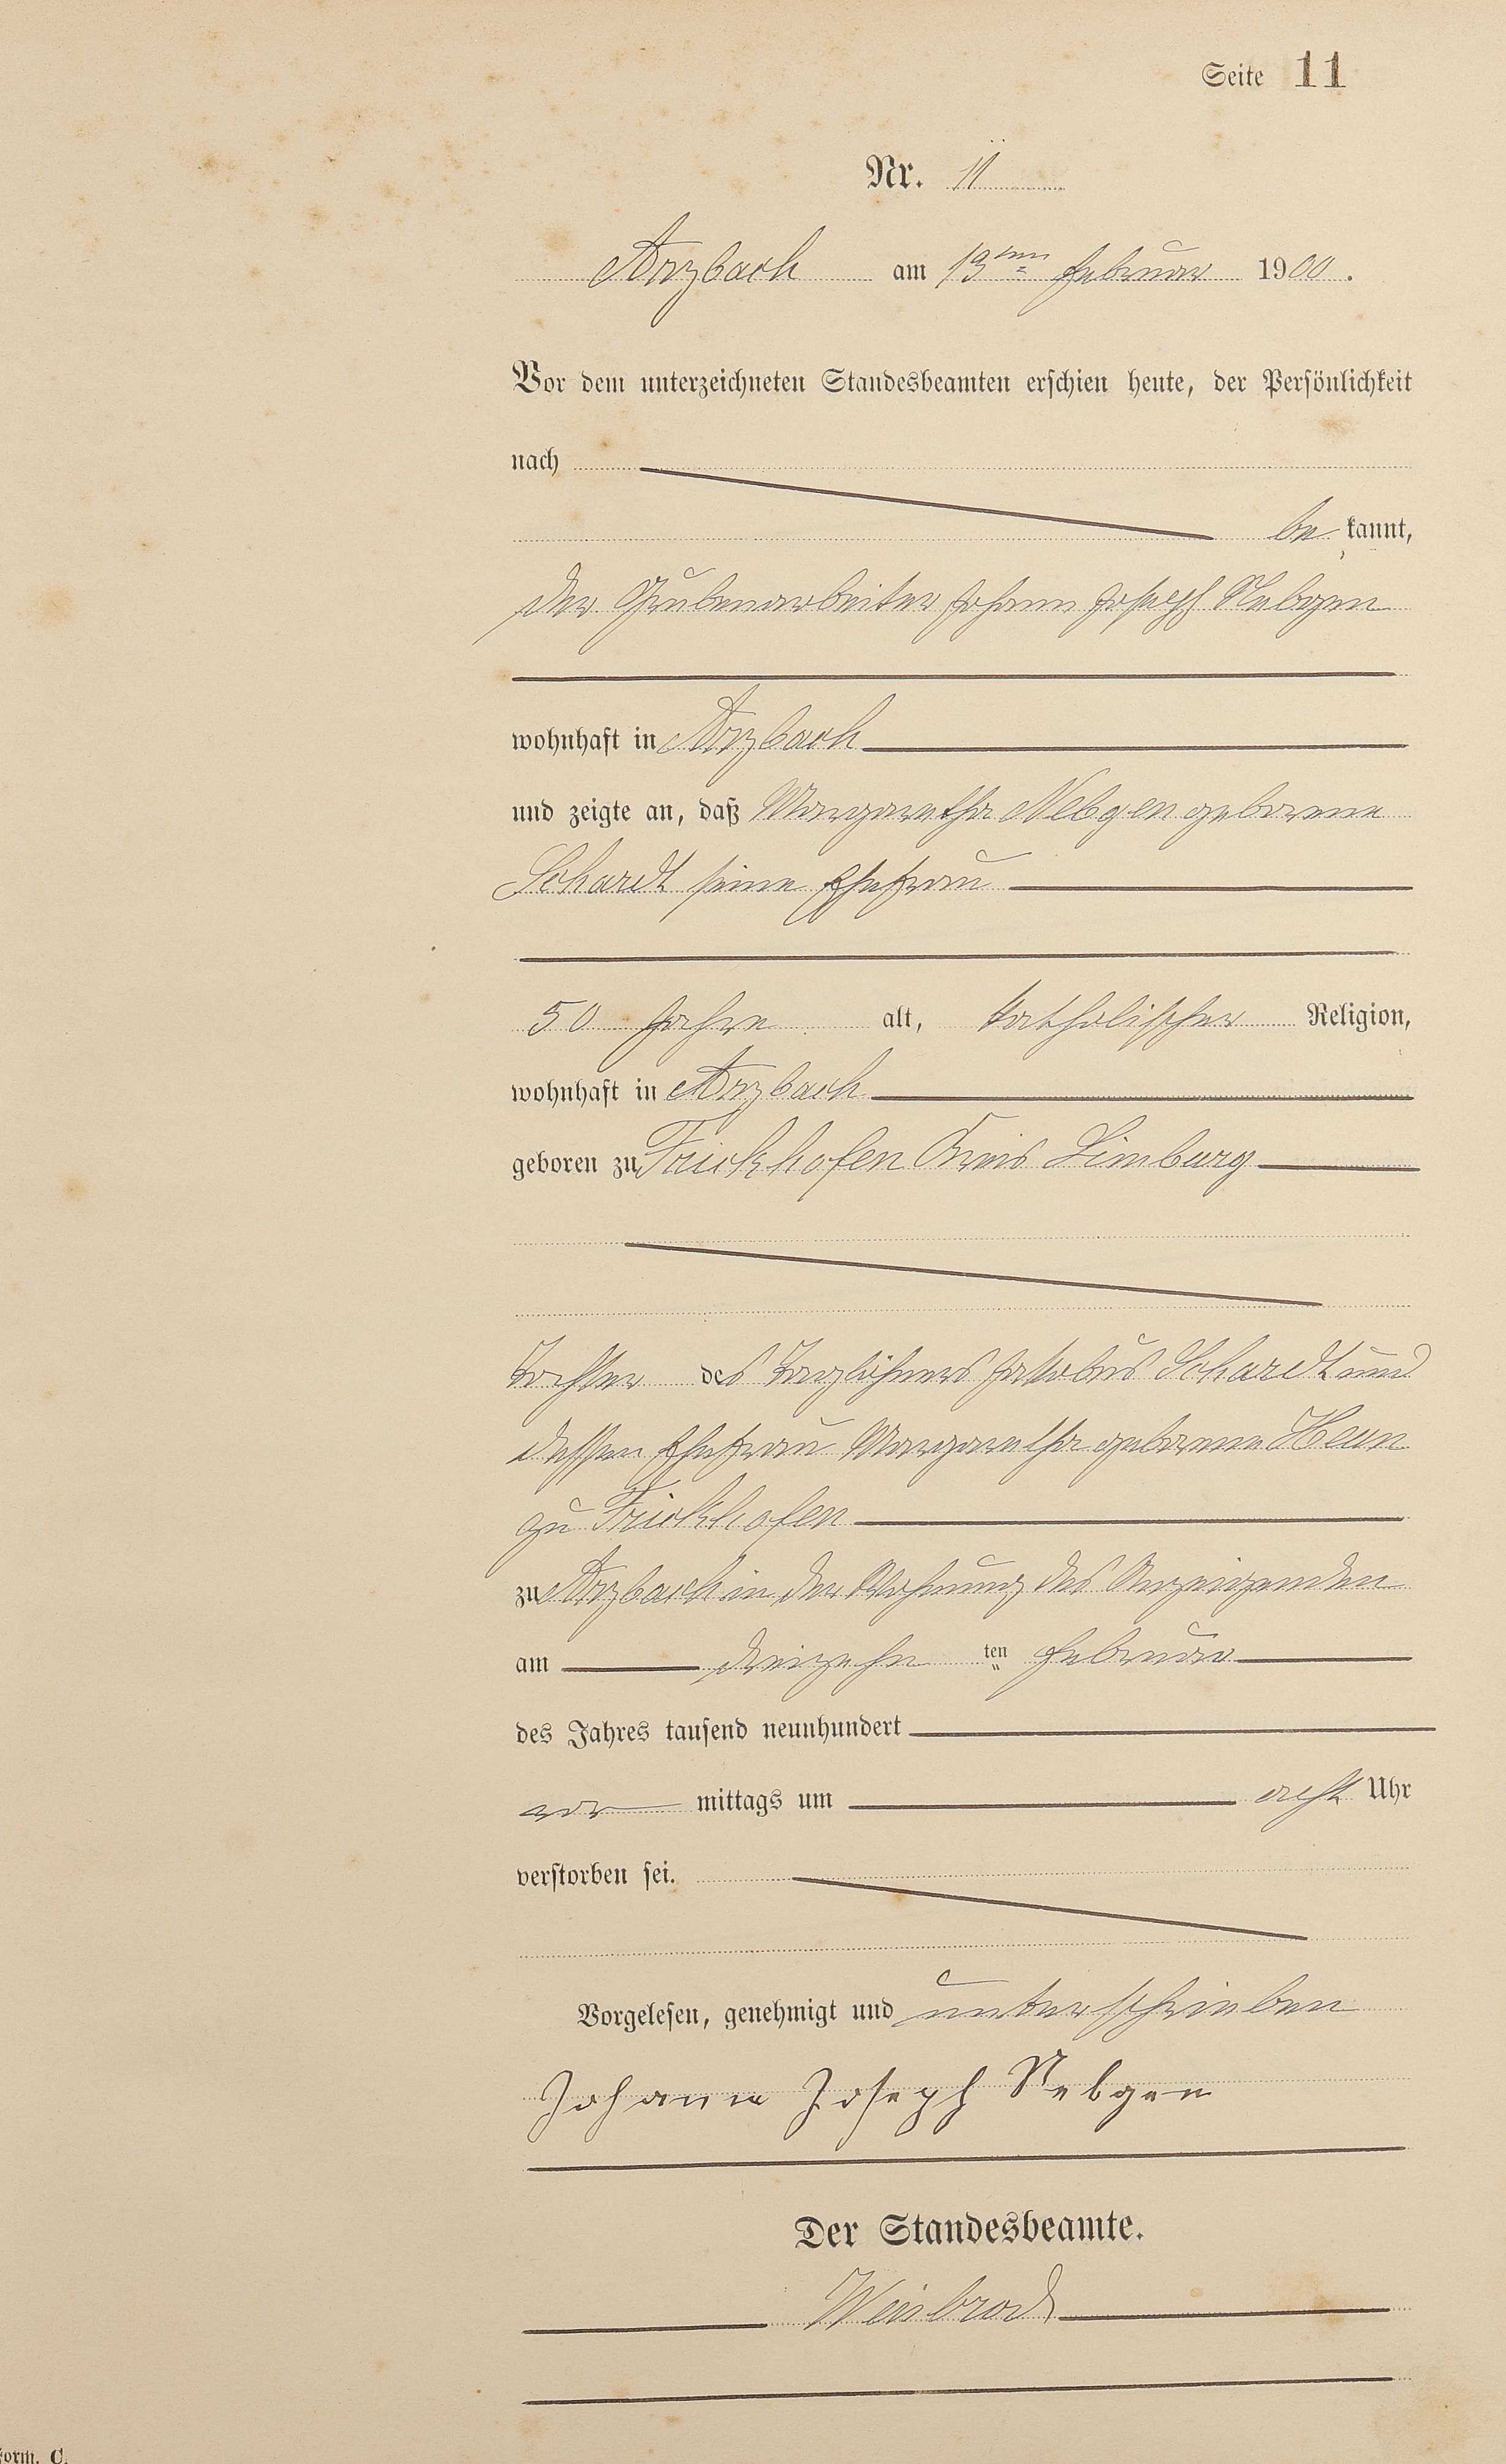 Seite 11
Nr. 11
Arzbach am 13ten Februar 1900.
Vor dem unterzeichneten Standesbeamten erschien heute, der Persönlichkeit
nach
be kannt,
der Grubenarbeiter Johann Joseph Nebgen
wohnhaft in Arzbach
und zeigte an, daß Margaretha Nebgen geborene
Schardt seine Ehefrau
50 Jahre alt, katholischer Religion,
wohnhaft in Arzbach
geboren zu Frickhofen Kreis Limburg
Tochter des Taglöhners Jakobus Schardt und
dessen Ehefrau Margaretha geborene Heun
zu Frickhofen
zu Arzbach in der Wohnung des Anzeigenden
am dreizehn ten Februar
des Jahres tausend neunhundert
vor mittags um acht Uhr
verstorben sei.
Vorgelesen, genehmigt und unterschrieben
Johann Joseph Nebgen
Der Standesbeamte.
Weisbrod
Form. C.